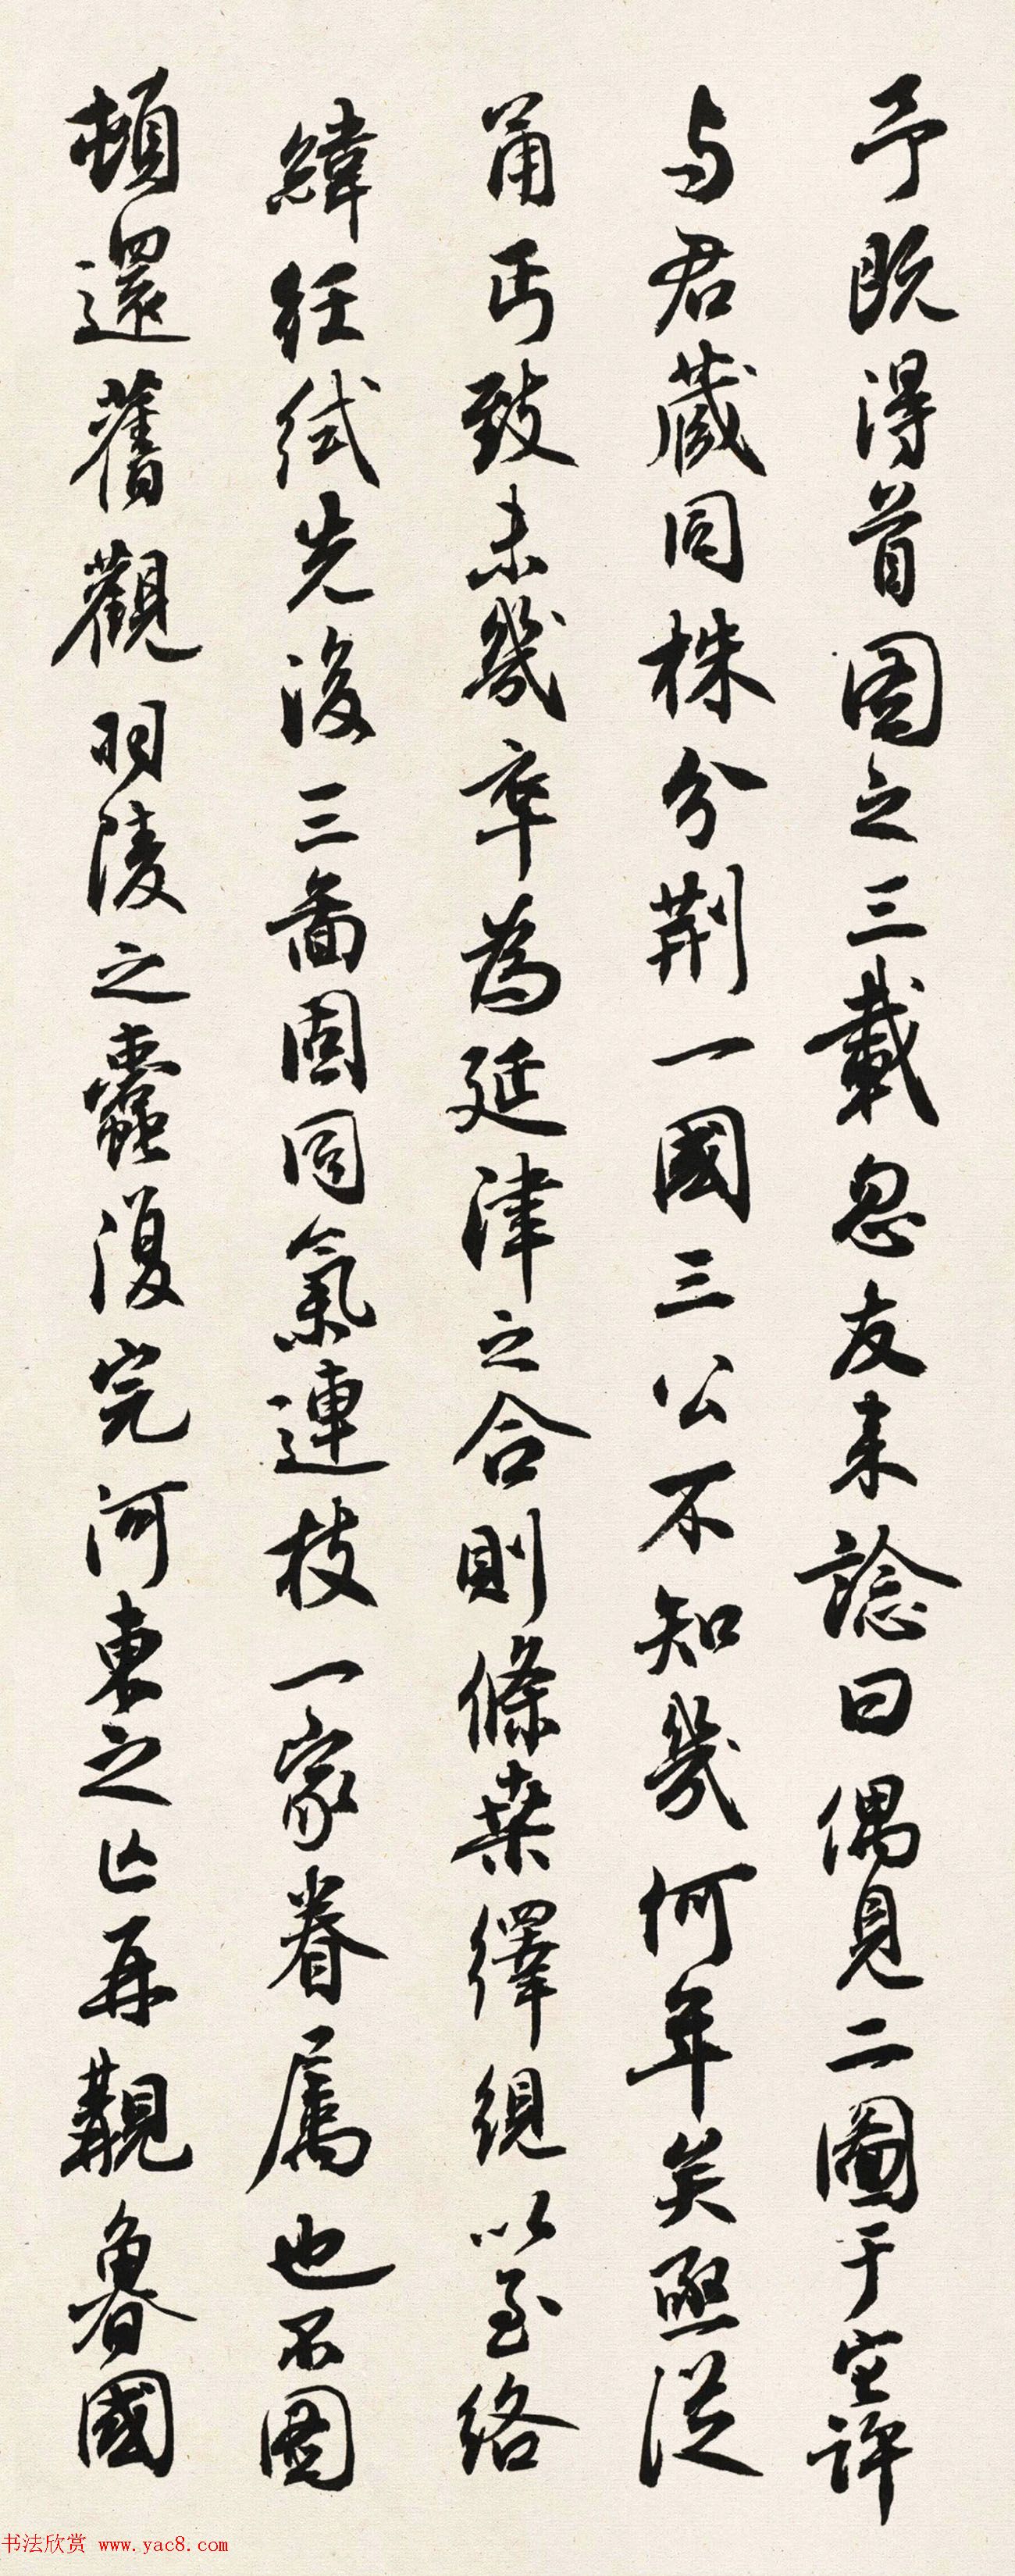 予既得首圖之三載忽友来諗曰偶見二圖于它許
与君藏同株分荆一國三公不知幾何年矣亟從
甬丐致未幾卒為延津之合則條桑繹絸以至絡
緯紝絨先後三啚固同氣連枝一家眷属也不圖
頓還舊觀羽陵之蠹復完河東之亡再覯魯國
书法欣赏 www.yac8.com